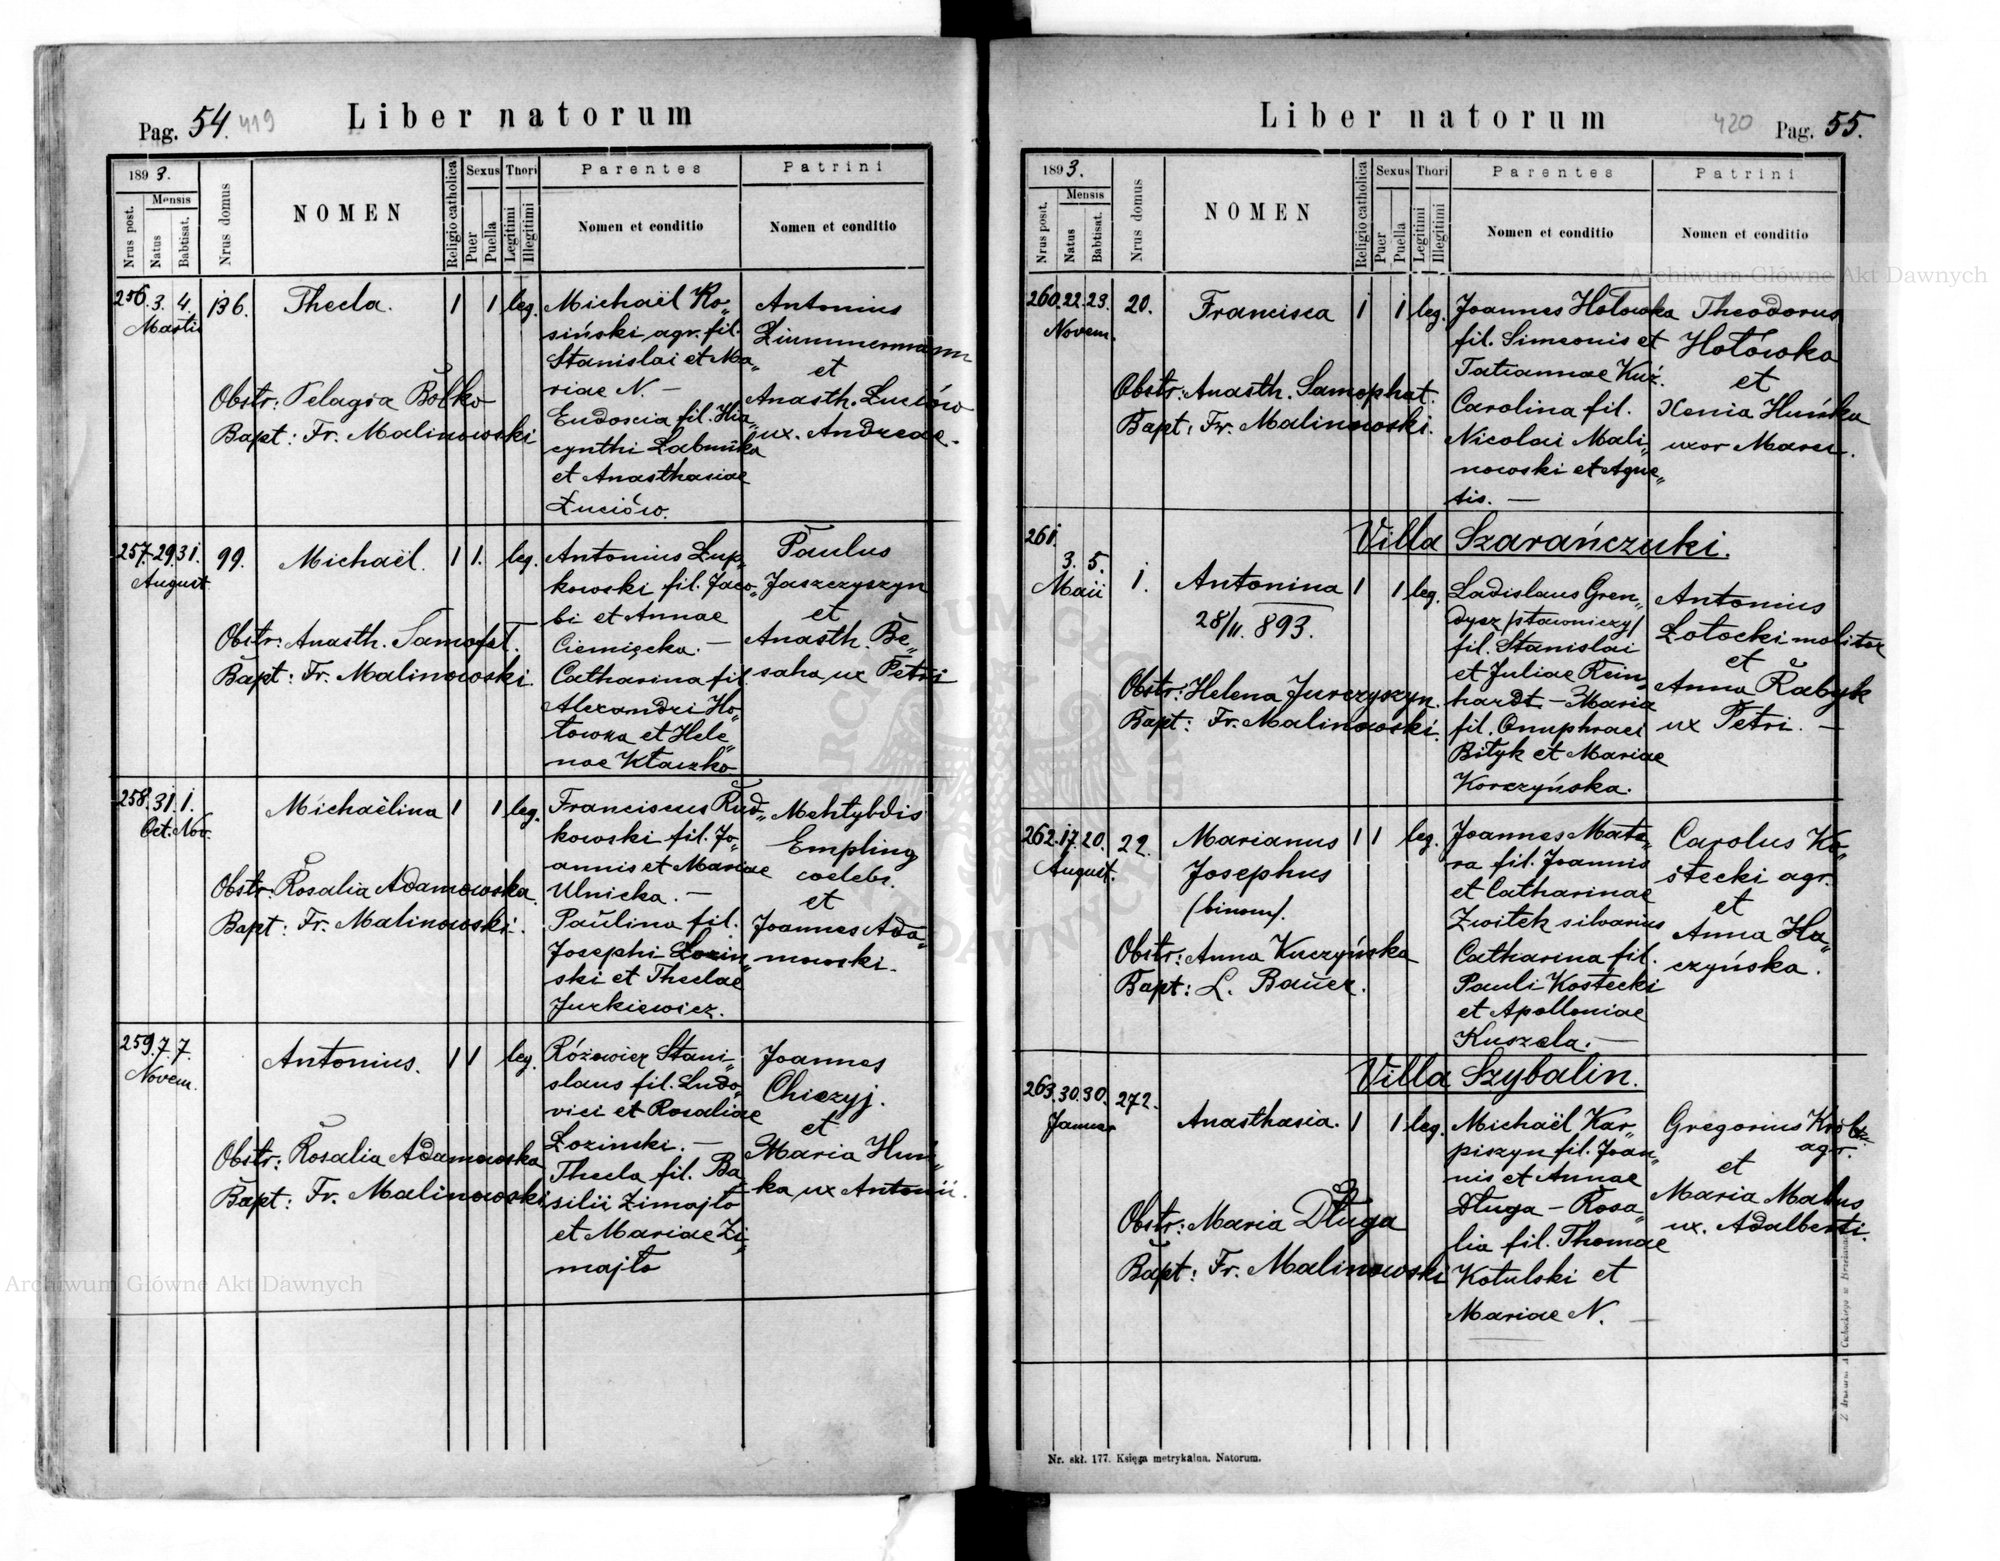 Pag. 54. 419
Liber natorum
1893.
Nrus post.
Mensis
Natus
Babtisat.
Nrus domus
NOMEN
Religio catholica
Sexus
Puer
Puella
Thori
Legitimi
Illegitimi
Parentes
Nomen et conditio
Patrini
Nomen et conditio
256. 3. 4. 136. Thecla. 1 1 leg.
Martii
Obstr: Pelagia Bolko
Bapt: Fr. Malinowski
Michaël Ko„
siński agr. fil.
Stanislai et Ma„
riae N. —
Eudoscia fil. Hia„
cynthi Labunka
et Anasthasiae
Łuciów.
Antonius
Zimmermann
et
Anasth. Łuciów
ux. Andreae.
257. 29. 31. 99. Michaël. 1 1. leg.
August
Obstr: Anasth. Samofat.
Bapt: Fr. Malinowski.
Antonius Łup„
kowski fil. Jaco„
bi et Annae
Ciemięcka. —
Catharina fil.
Alexandri Ho„
łowka et Hele„
nae Kłaczko
Paulus
Jaszczyszyn
et
Anasth. Be„
saha ux Petri
258. 31. 1. Michaëlina 1 1 leg.
Oct. Nov.
Obstr: Rosalia Adamowska.
Bapt: Fr. Malinowski.
Franciscus Rud„
kowski fil. Jo„
annis et Mariae
Ulnicka. —
Paulina fil.
Josephi Łozin„
ski et Theclae
Jurkiewicz.
Mehtyldis
Empling
coelebs.
et
Joannes Ada„
mowski.
259. 7. 7. Antonius. 1 1 leg.
Novem.
Obstr: Rosalia Adamowska
Bapt: Fr. Malinowski
Różewicz Stani„
slaus fil. Ludo„
vici et Rosaliae
Łozinski. —
Thecla fil. Ba„
silii Zimajło
et Mariae Zi„
majło
Joannes
Chiczyj.
et
Maria Huń„
ka ux Antonii.
Liber natorum
420 Pag. 55.
1893.
Nrus posit.
Mensis
Natus
Babtisat.
Nrus domus
NOMEN
Religio catholica
Sexus
Puer
Puella
Thori
Legitimi
Illegitimi
Parentes
Nomen et conditio
Patrini
Nomen et conditio
260. 22. 23. 20. Francisca 1 1 leg.
Novem.
Obstr: Anasth. Samophat.
Bapt: Fr. Malinowski.
Joannes Hołowka
fil. Simeonis et
Tatiannae Kuź.
Carolina fil.
Nicolai Mali„
nowski et Agne„
tis. —
Theodorus
Hołówka
et
Xenia Huńka
uxor Marci.
261.
Villa Szarańczuki.
3. 5. 1. Antonina 1 1 leg.
Maii
28/11. 893.
Obstr: Helena Jurczyszyn.
Bapt: Fr. Malinowski.
Ladislaus Gren„
dysz /stawniczy/
fil. Stanislai
et Juliae Rein„
hardt — Maria
fil. Onuphraei
Bityk et Mariae
Korczyńska.
Antonius
Łotocki molitor
et
Anna Rabyk
ux Petri. —
262. 17. 20. 22. Marianus 1 1 leg.
August.
Josephus
/binom/.
Obstr: Anna Kuczyńska
Bapt: L. Bauer.
Joannes Mata„
ra fil. Joannis
et Catharinae
Zwitek silvarius
Catharina fil.
Pauli Kostecki
et Apolloniae
Kuszela. —
Carolus Ko„
stecki agr.
et
Anna Ha„
czyńska.
Villa Szybalin.
263. 30. 30. 272. Anasthasia. 1 1 leg.
Januar
Obstr: Maria Długa
Bapt: Fr. Malinowski
Michaël Kar„
piszyn fil. Joan„
nis et Annae
Długa — Rosa„
lia fil. Thomae
Kotulski et
Mariae N. —
Gregorius
agr.
et
Maria Malus
ux. Adalberti.
Nr. skł. 177. Księga metrykalna. Natorum.
Archiwum Główne Akt Dawnych
Archiwum Główne Akt Dawnych